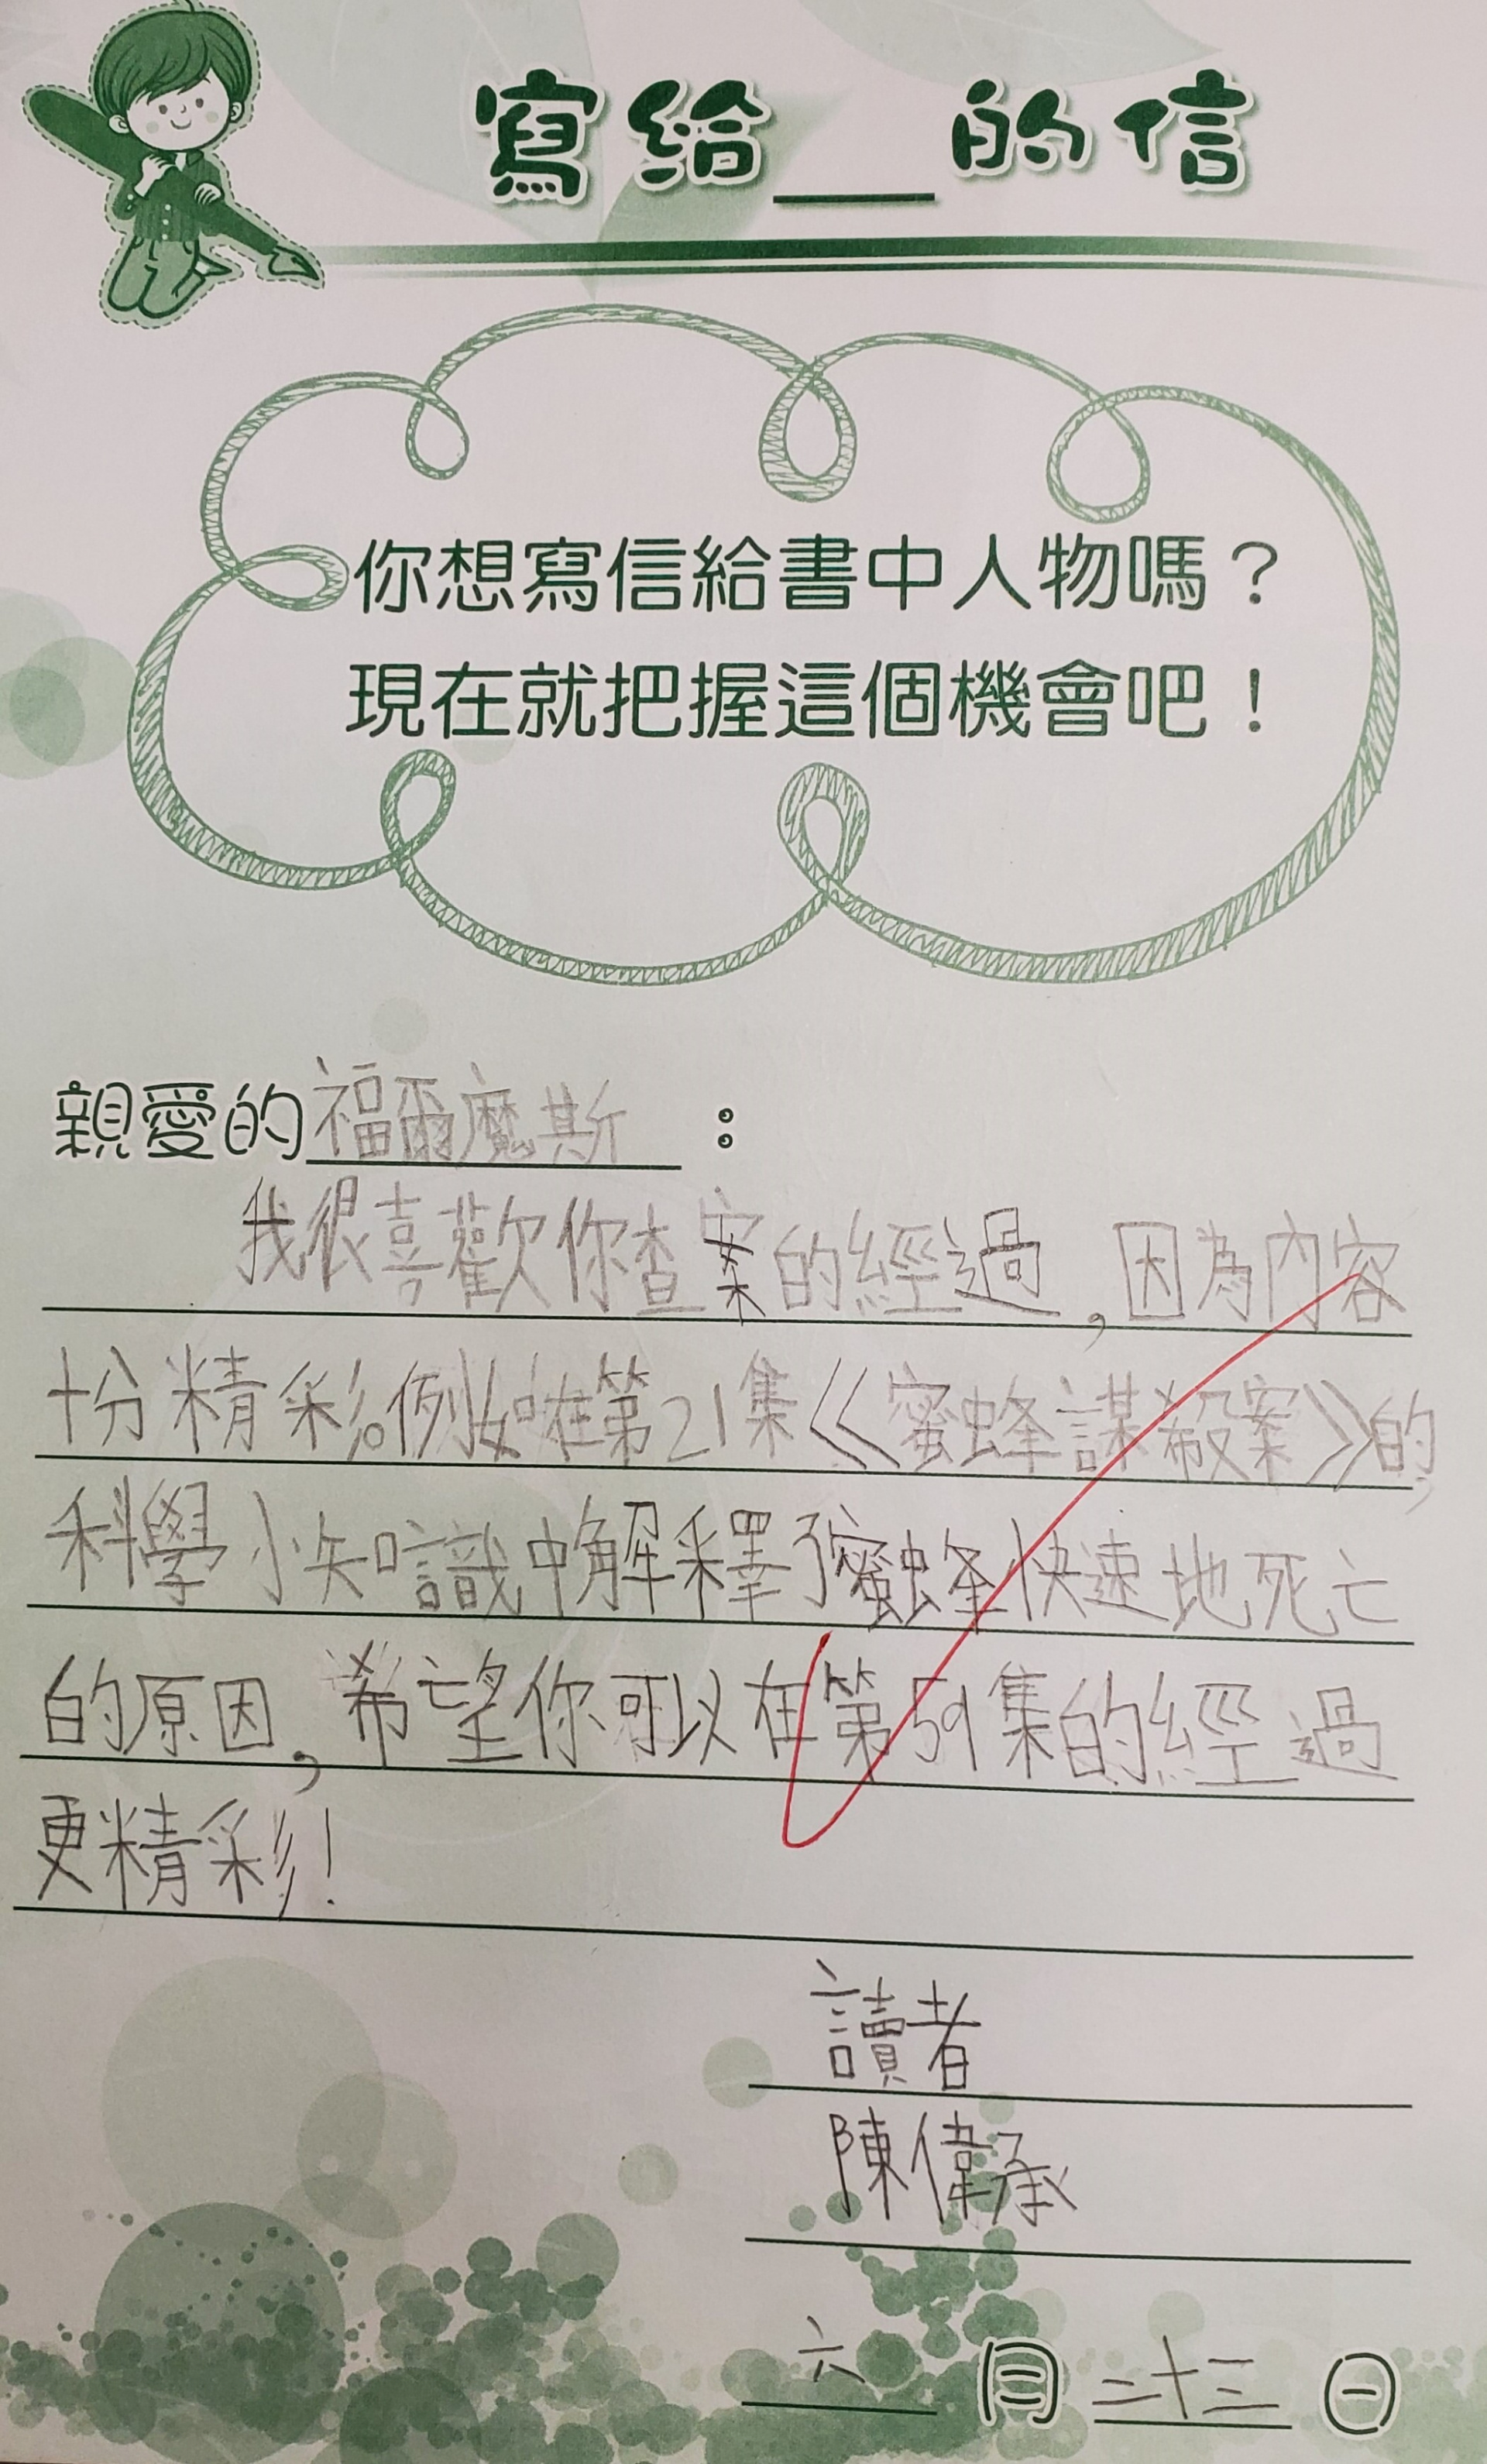 寫給___的信
你想寫信給書中人物嗎？
現在就把握這個機會吧！
親愛的福爾摩斯：
我很喜歡你查案的經過，因為內容
十分精彩。例如在第21集《蜜蜂謀殺案》的
科學小知識中解釋了蜜蜂快速地死亡
的原因，希望你可以在第59集的經過
更精彩！
讀者
陳偉承
六月二十三日